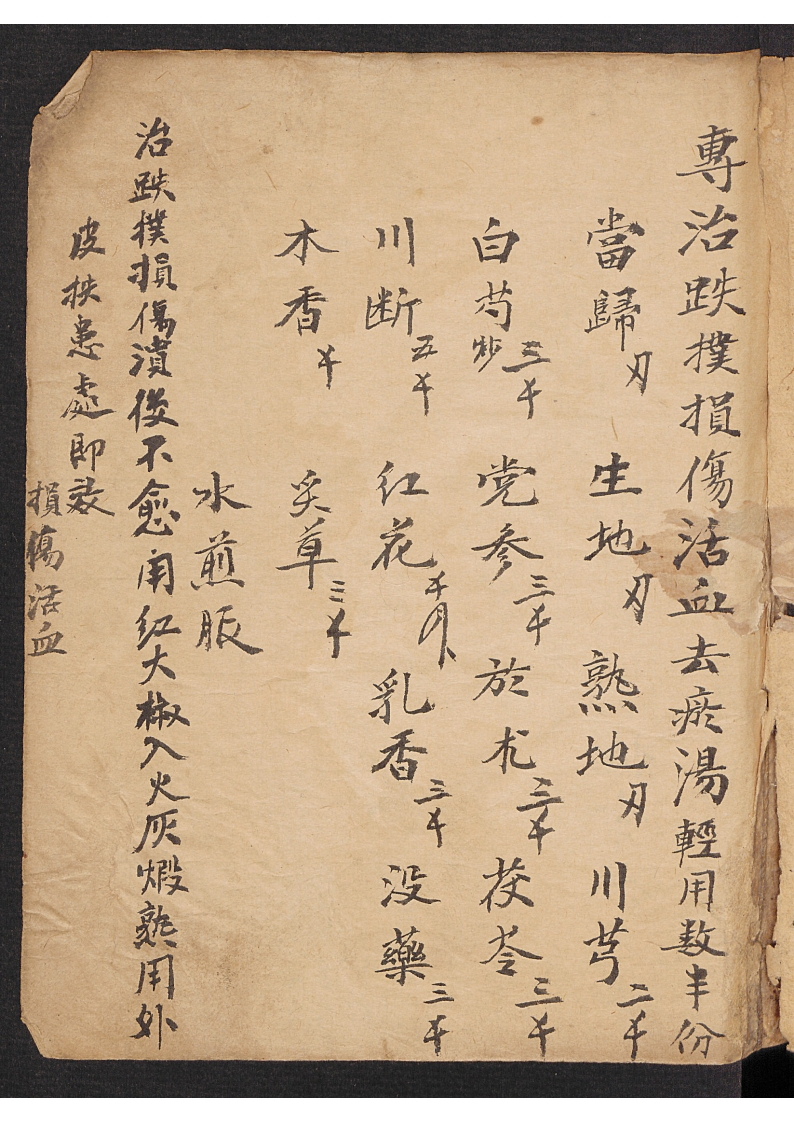 專治跌撲損傷活血去瘀湯輕用数半份
當歸刃 生地刃 熟地刃 川芎二千
白芍炒三千 党參三千 於朮三千 茯苓三千
川断五千 红花千 乳香三千 没藥三千
木香千 炙草三千
水煎服
治跌撲損傷潰後不愈用红大椒入火灰煅熟用外
皮抶患處即效
損傷活血